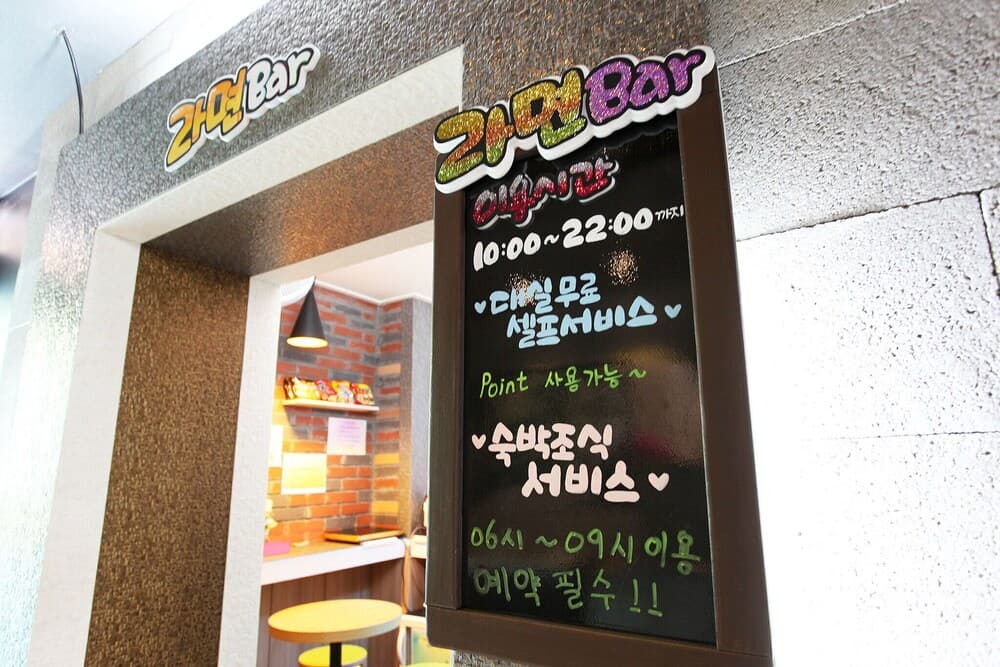 라면Bar
라면Bar
이용시간
10:00~22:00까지
대실무료
셀프서비스
Point 사용가능~
숙박조식
서비스
06시~09시이용
예약 필수!!